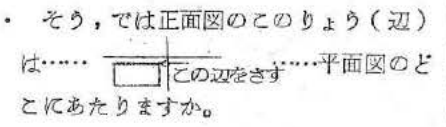 ・ そう，では正面図のこのりょう（辺）
は…… この辺をさす ……平面図のど
こにあたりますか。